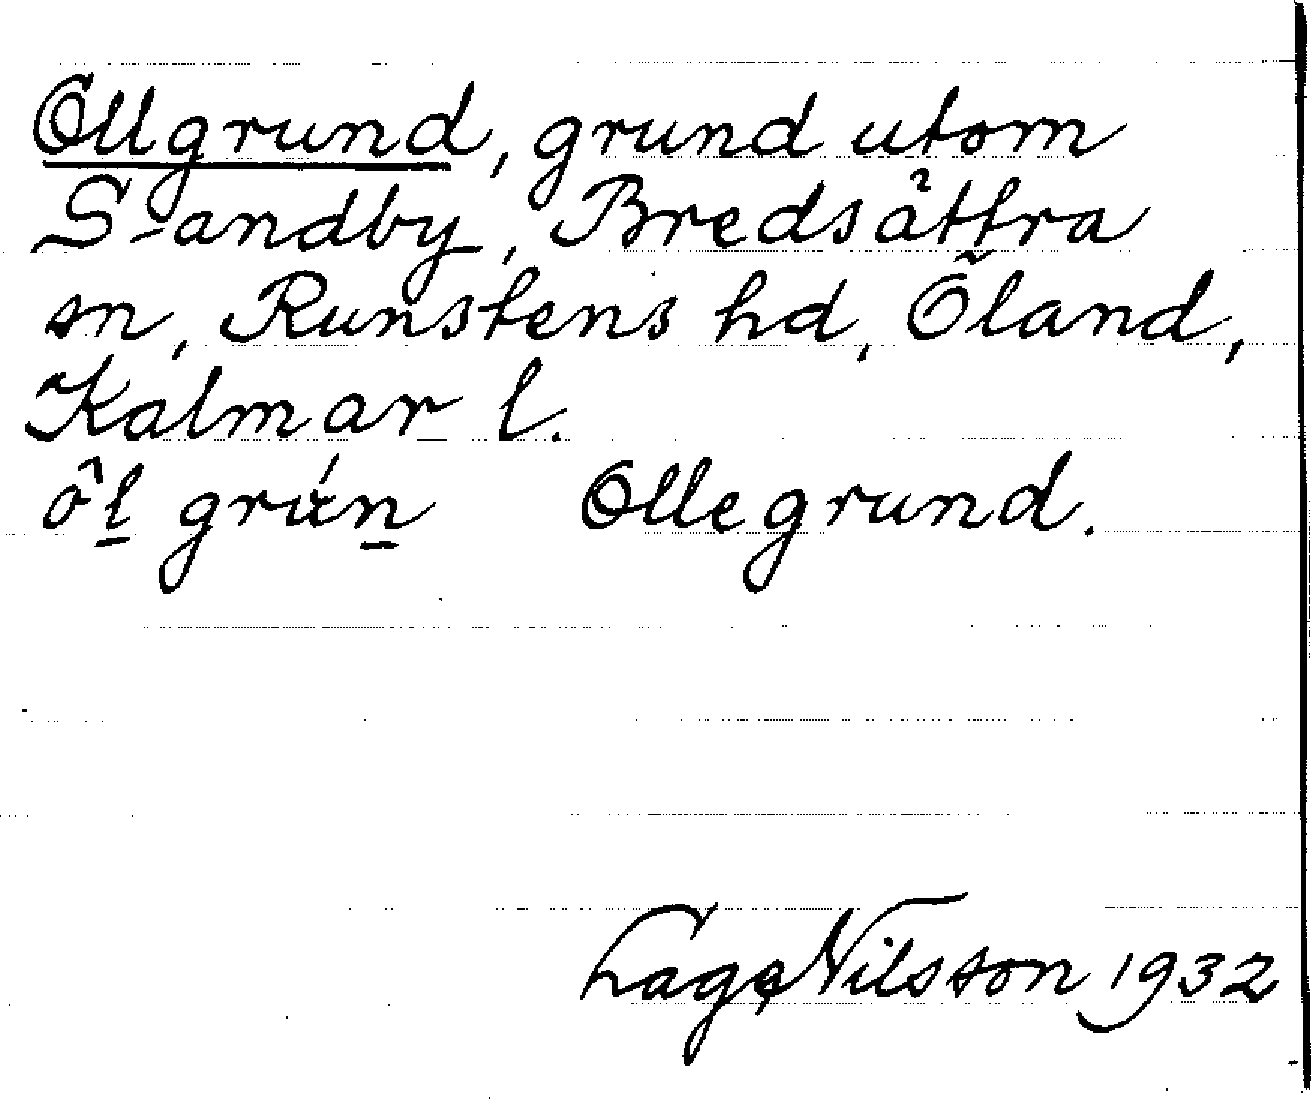 Ollgrund, grund utom
Sandby, Bredsättra
sn, Runstens hd, Öland,
Kalmar l.
Ollegrund.
Lage Nilsson 1932